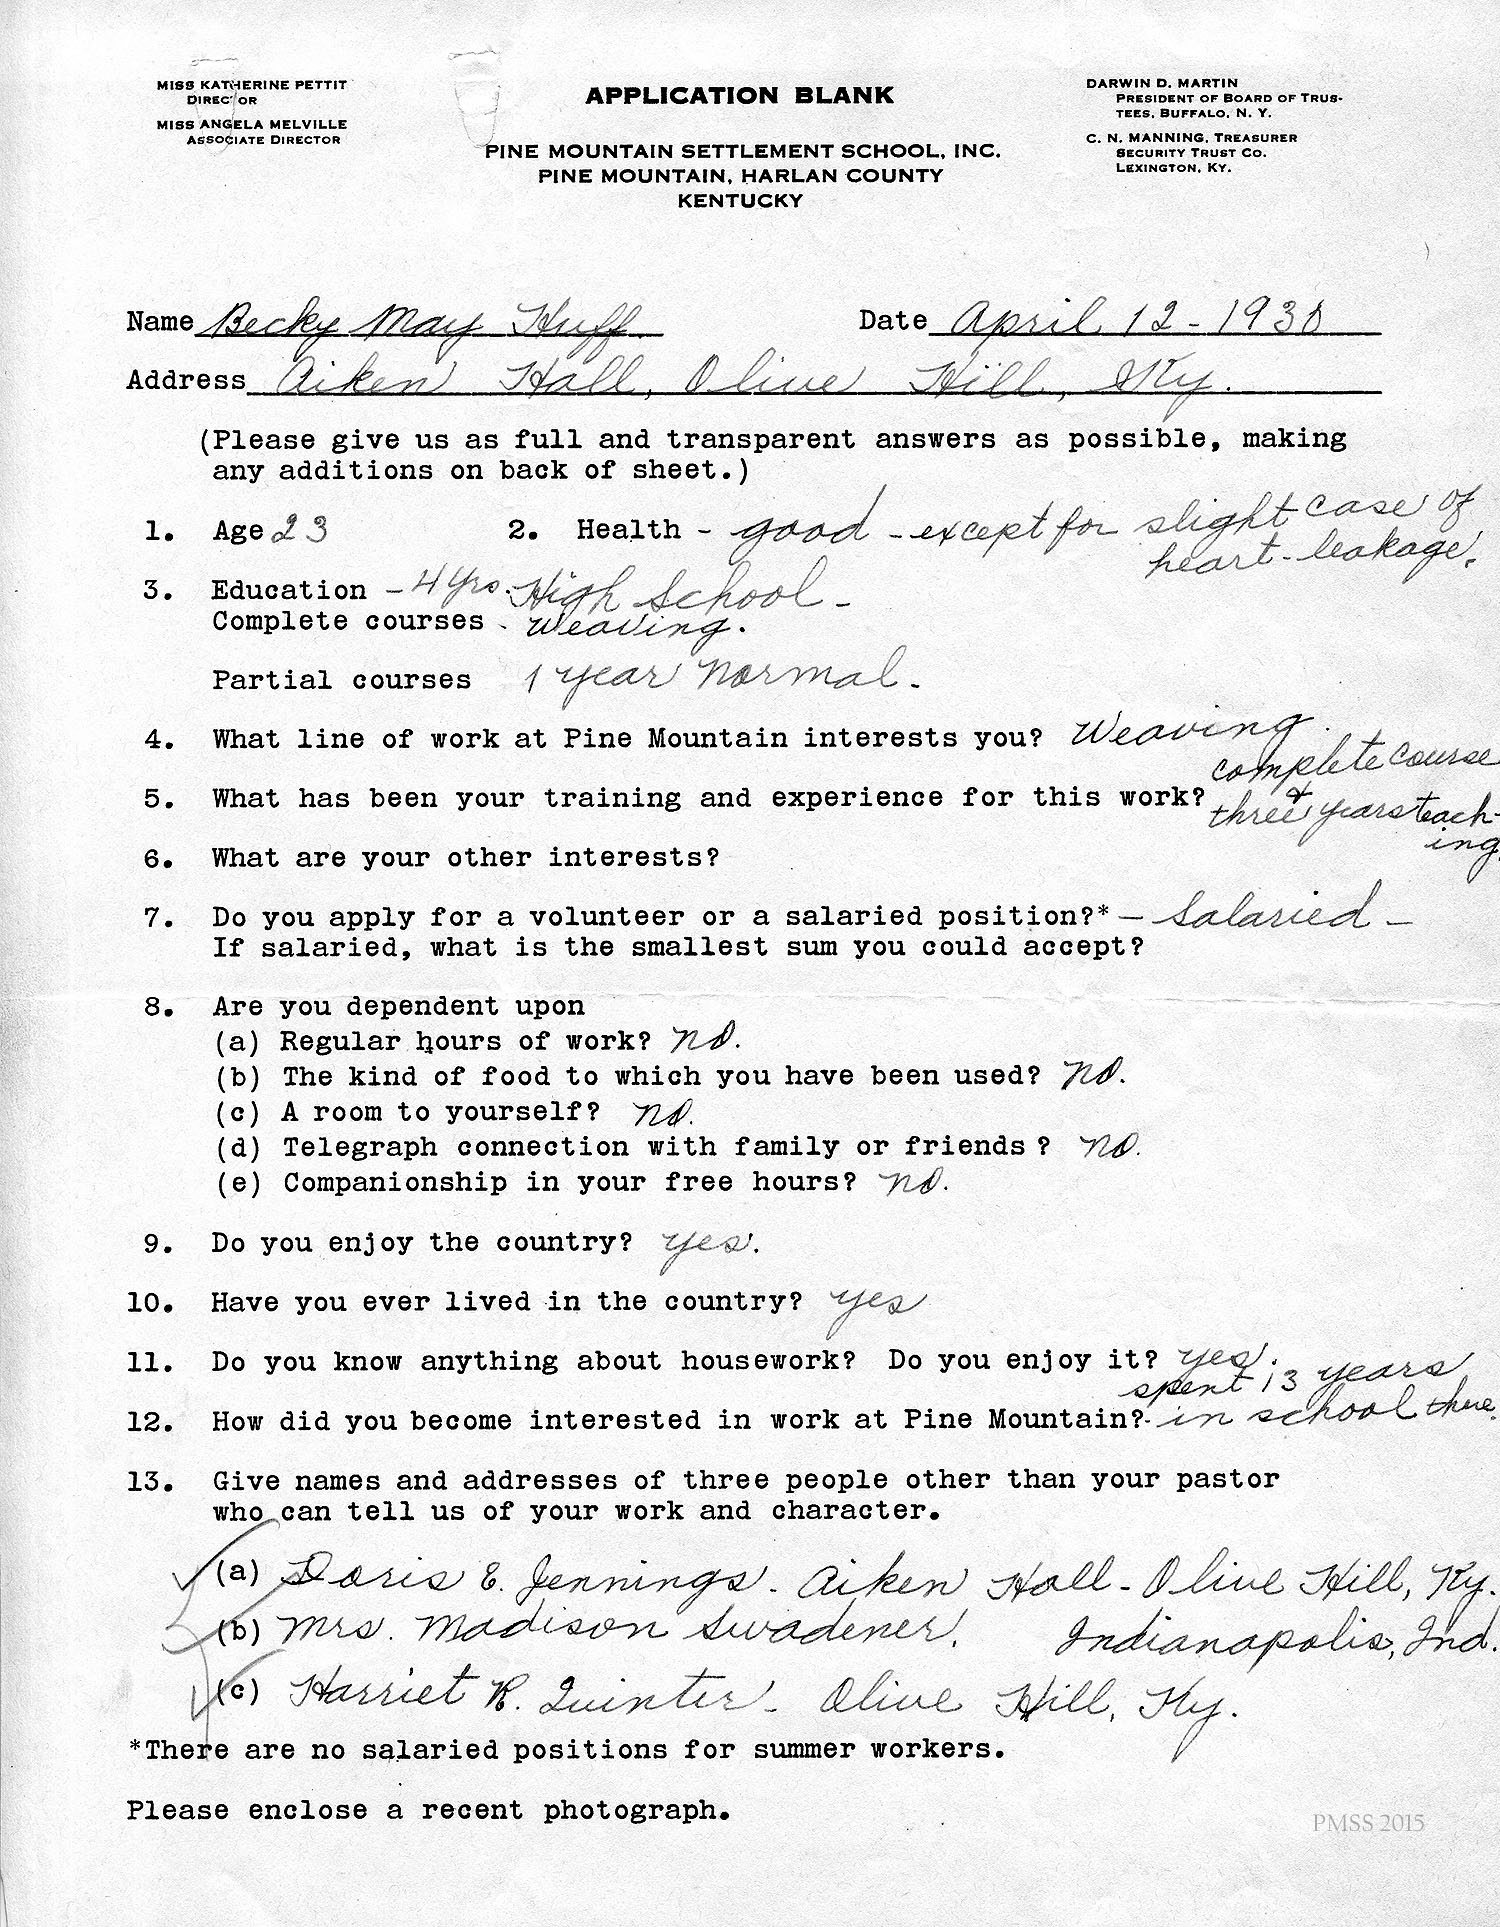 MISS KATHERINE PETTIT
DIRECTOR
MISS ANGELA MELVILLE
ASSOCIATE DIRECTOR
APPLICATION BLANK
PINE MOUNTAIN SETTLEMENT SCHOOL, INC.
PINE MOUNTAIN, HARLAN COUNTY
KENTUCKY
DARWIN D. MARTIN
PRESIDENT OF BOARD OF TRUS-
TEES, BUFFALO, N. Y.
C. N. MANNING, TREASURER
SECURITY TRUST CO.
LEXINGTON, KY.
Name Becky May Huff Date April 12-1930
Address Aiken Hall, Olive Hill, Ky.
(Please give us as full and transparent answers as possible, making
any additions on back of sheet.)
1. Age 23 2. Health - good - except for slight case of
heart-leakage.
3. Education - 4 yrs. High School -
Complete courses - Weaving.
Partial courses 1 year Normal.
4. What line of work at Pine Mountain interests you? Weaving.
complete course
5. What has been your training and experience for this work? &
three years teach-
ing.
6. What are your other interests?
7. Do you apply for a volunteer or a salaried position?* - Salaried -
If salaried, what is the smallest sum you could accept?
8. Are you dependent upon
(a) Regular hours of work? No.
(b) The kind of food to which you have been used? No.
(c) A room to yourself? No.
(d) Telegraph connection with family or friends? No.
(e) Companionship in your free hours? No.
9. Do you enjoy the country? yes.
10. Have you ever lived in the country? yes
11. Do you know anything about housework? Do you enjoy it? yes.
spent 13 years
12. How did you become interested in work at Pine Mountain?- in school there.
13. Give names and addresses of three people other than your pastor
who can tell us of your work and character.
(a) Doris E. Jennings. Aiken Hall - Olive Hill, Ky.
(b) Mrs. Madison Swadener. Indianapolis, Ind.
(c) Harriet R. Quinter - Olive Hill, Ky.
*There are no salaried positions for summer workers.
Please enclose a recent photograph.
PMSS 2015